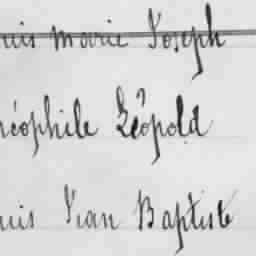 uis Marie Joseph
héophile Léopold
uis Jean Baptiste